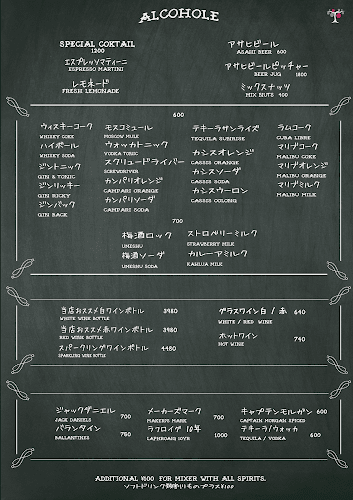 ALCOHOLE
SPECIAL COKTAIL
1200
エスプレッソマティーニ
ESPRESSO MARTINI
レモネード
FRESH LEMONADE
アサヒビール
ASAHI BEER 600
アサヒビールピッチャー
BEER JUG 1800
ミックスナッツ
MIX NUTS 400
600
ウィスキーコーク
WHISKY COKE
ハイボール
WHISKY SODA
ジントニック
GIN & TONIC
ジンリッキー
GIN RICKY
ジンバック
GIN BACK
モスコミュール
MOSCOW MULE
ウォッカトニック
VODKA TONIC
スクリュードライバー
SCREWDRIVER
カンパリオレンジ
CAMPARI ORANGE
カンパリソーダ
CAMPARI SODA
テキーラサンライズ
TEQUILA SUNRISE
カシスオレンジ
CASSIS ORANGE
カシスソーダ
CASSIS SODA
カシスウーロン
CASSIS OOLONG
ラムコーク
CUBA LIBRE
マリブコーク
MALIBU COKE
マリブオレンジ
MALIBU ORANGE
マリブミルク
MALIBU MILK
700
梅酒ロック
UMESHU
梅酒ソーダ
UMESHU SODA
ストロベリーミルク
STRAWBERRY MILK
カルーアミルク
KAHLUA MILK
当店おススメ白ワインボトル 3980
WHITE WINE BOTTLE
当店おススメ赤ワインボトル 3980
RED WINE BOTTLE
スパークリングワインボトル 4480
SPARKLING WINE BOTTLE
グラスワイン白 / 赤 640
WHITE / RED WINE
ホットワイン 740
HOT WINE
ジャックダニエル 700
JACK DANIELS
バランタイン 750
BALLANTINES
メーカーズマーク 700
MAKERS MARK
ラフロイグ 10年 1000
LAPHROAIG 10YR
キャプテンモルガン 600
CAPTAIN MORGAN SPICED
テキーラ/ウォッカ 600
TEQUILA / VODKA
ADDITIONAL ¥100 FOR MIXER WITH ALL SPIRITS.